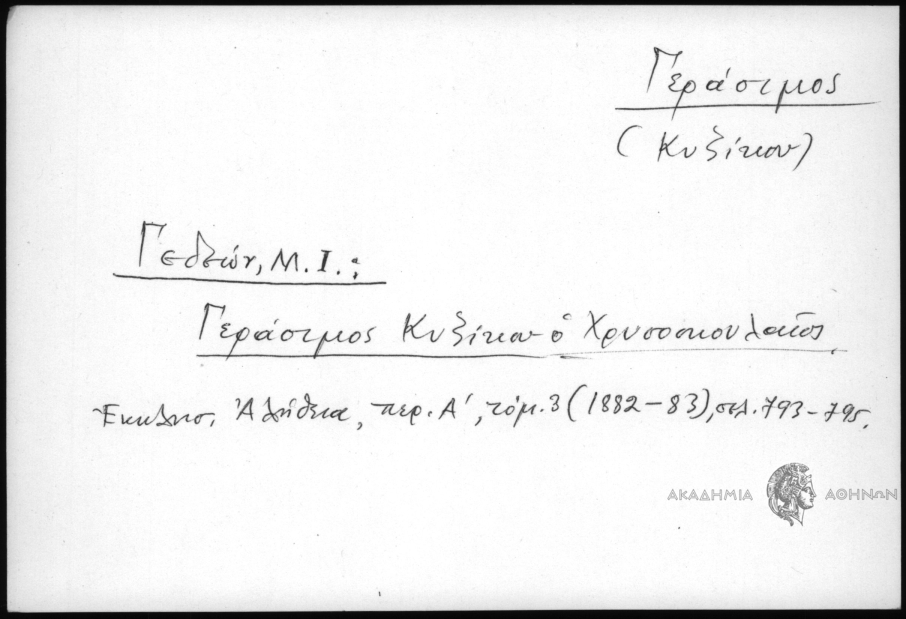 Γεράσιμος
(Κυζίκου)
Γεδεών, Μ. Ι.:
Γεράσιμος Κυζίκου ὁ Χρυσοσκουλαῖος.
Ἐκκλησ. Ἀλήθεια, περ. Α', τόμ. 3 (1882-83), σελ. 793-795.
ΑΚΑΔΗΜΙΑ ΑΘΗΝΩΝ